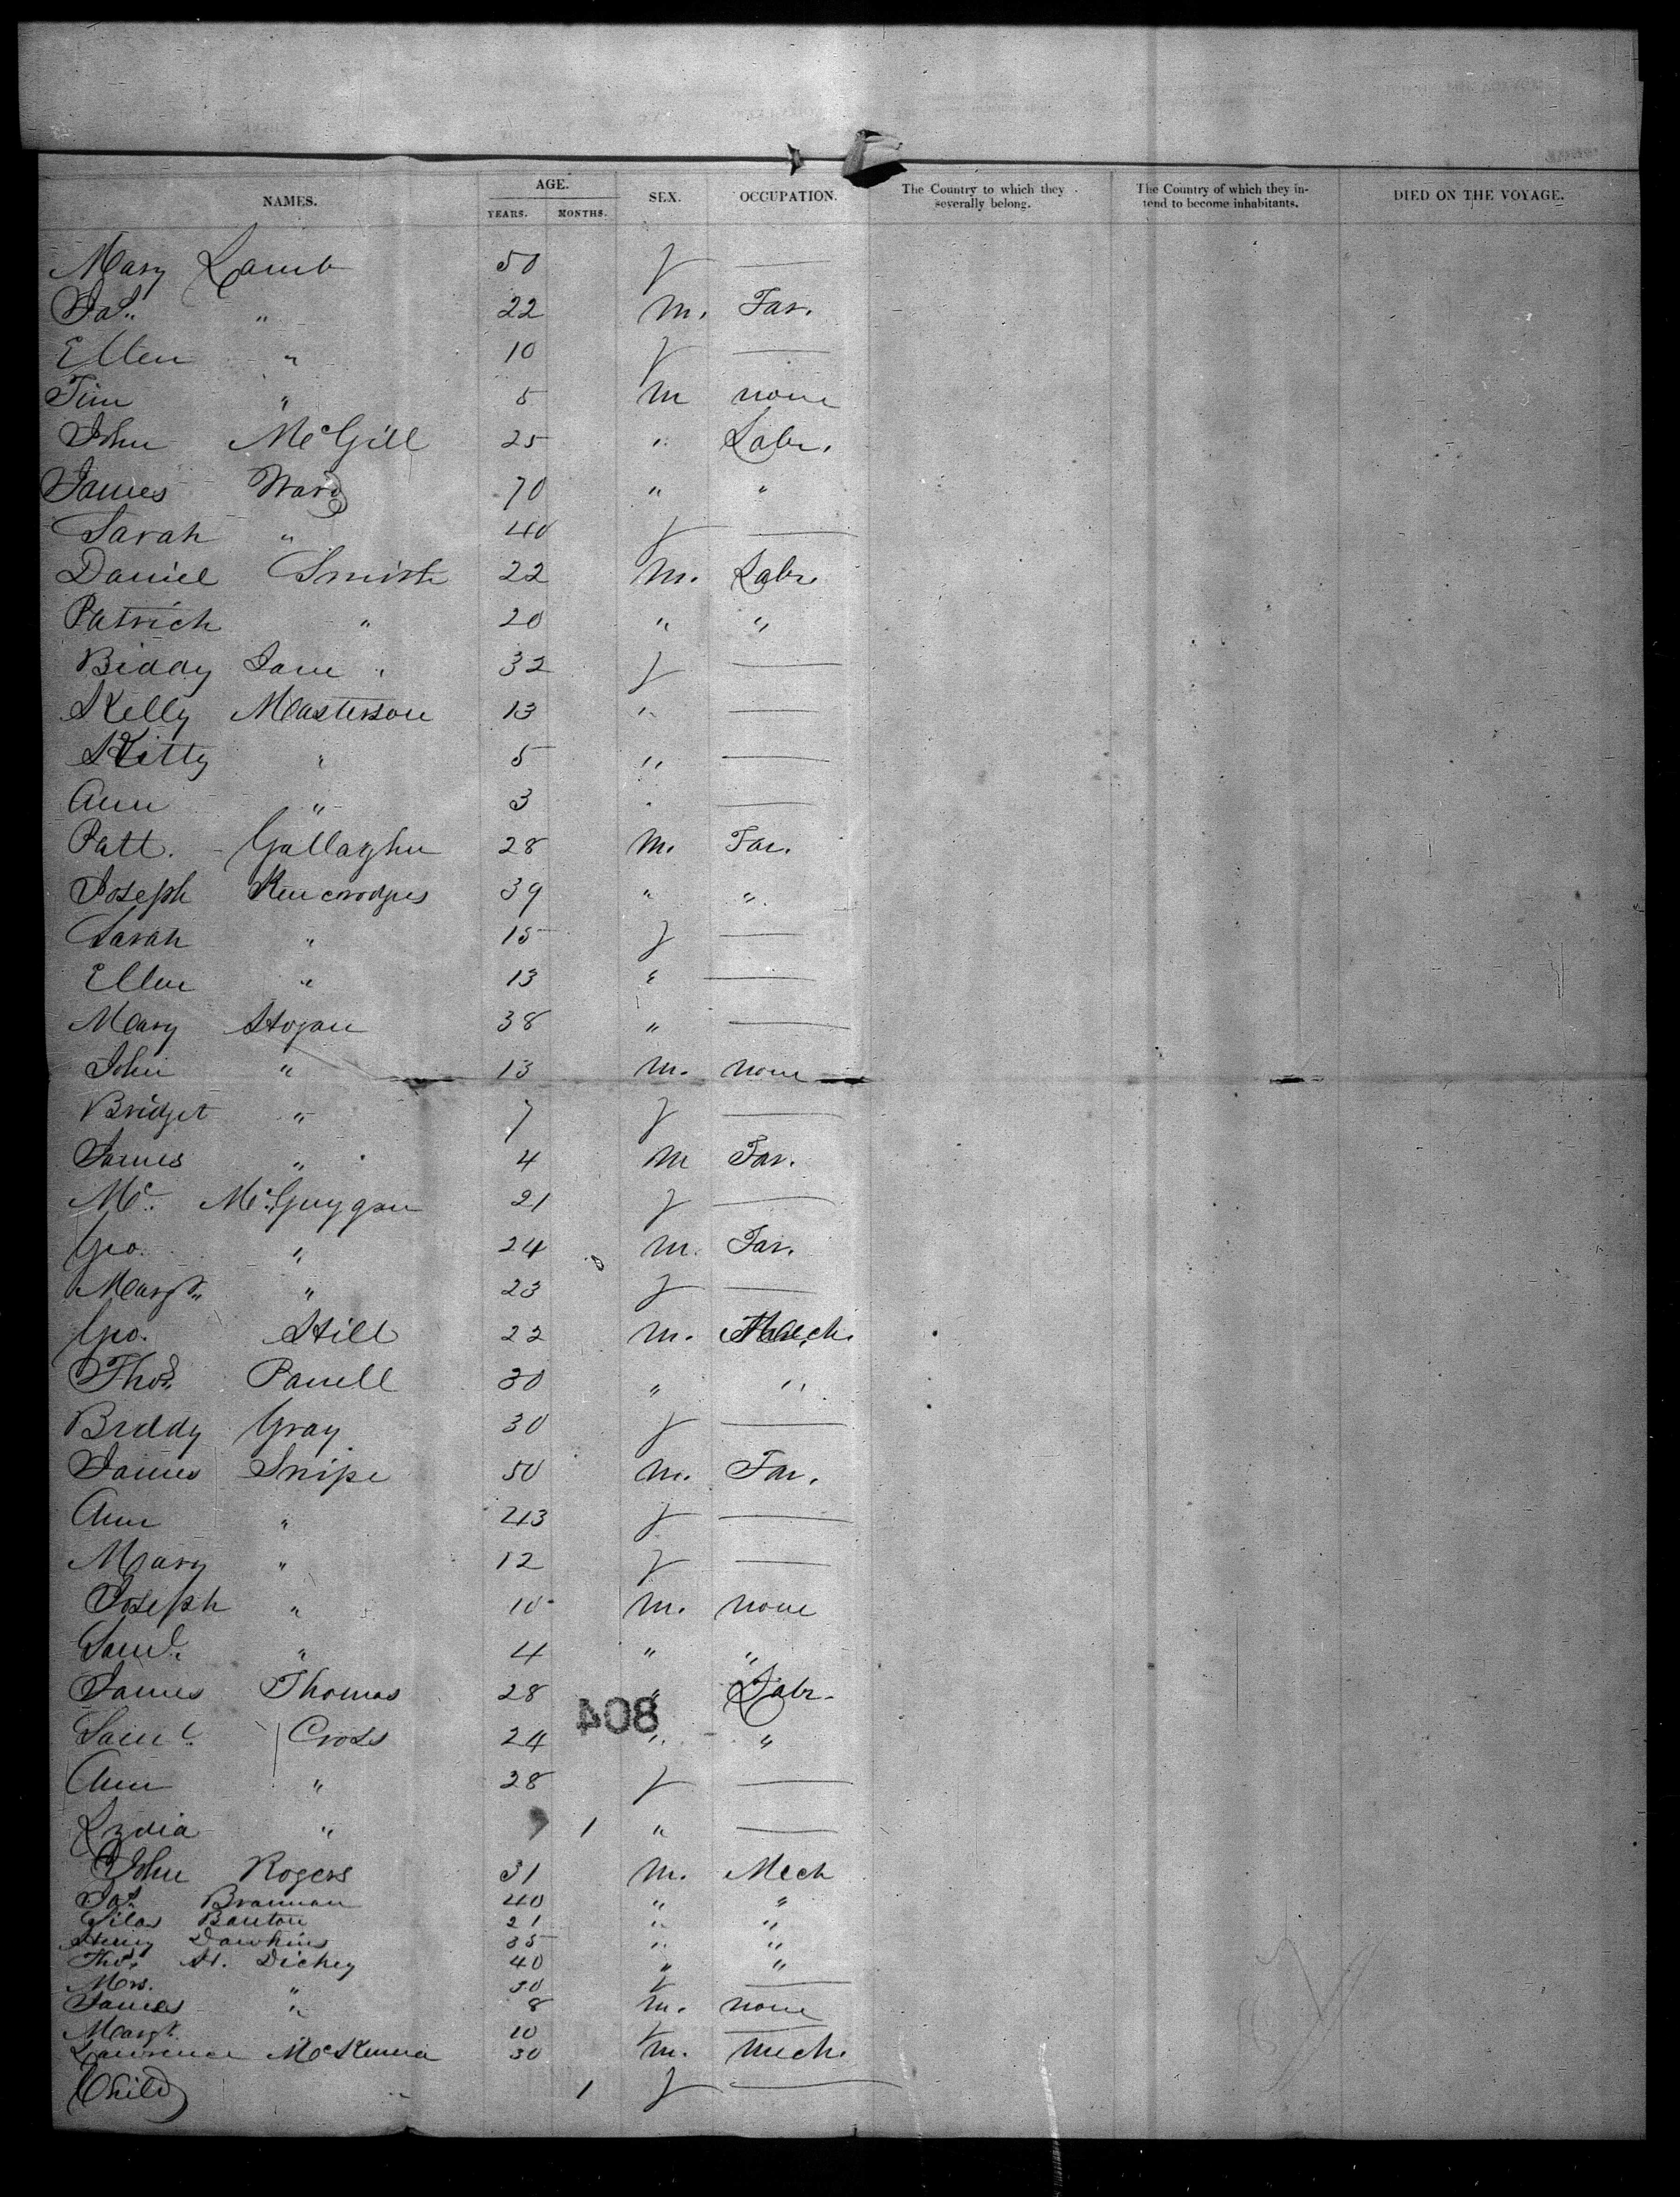 NAMES. AGE. YEARS. MONTHS. SEX. OCCUPATION. The Country to which they severally belong. The Country of which they intend to become inhabitants. DIED ON THE VOYAGE.
Mary Lamb 50 f —
Pat. " 22 m. Far.
Ellen " 10 f —
Tim " 5 m none
John McGill 25 " Labr.
James Ward 70 " "
Sarah " 40 f —
Daniel Smith 22 m. Labr.
Patrick " 20 " "
Biddy Jane " 32 f —
Kelly Masterson 13 " —
Kitty " 5 " —
Ann " 3 " —
Patt. Gallagher 28 m. Far.
Joseph 39 " "
Sarah " 15 f —
Ellen " 13 " —
Mary Hogan 38 " —
John " 13 m. none
Bridget " 7 f —
James " 4 m Far.
Mc. McGuygan 21 f —
Geo. " 24 m. Far.
Margt. " 23 f —
Geo. Hill 22 m. Mech.
Thos. Parnell 30 " "
Biddy Gray 30 f —
James Snipe 50 m. Far.
Ann " 43 f —
Mary " 12 f —
Joseph " 10 m. none
Saml. " 4 " "
James Thomas 28 " Labr.
804
Saml. Cross 24 " "
Ann " 28 f —
Lydia " 1 " —
John Rogers 31 m. Mech
Pat. Brannan 40 " "
Silas Banton 21 " "
Henry Dawkins 35 " "
Thos. H. Dickey 40 " "
Mrs. " 30 f —
James " 8 m. none
Margt. 10 f —
Lawrence McKenna 30 m. Mech.
Child " 1 f —